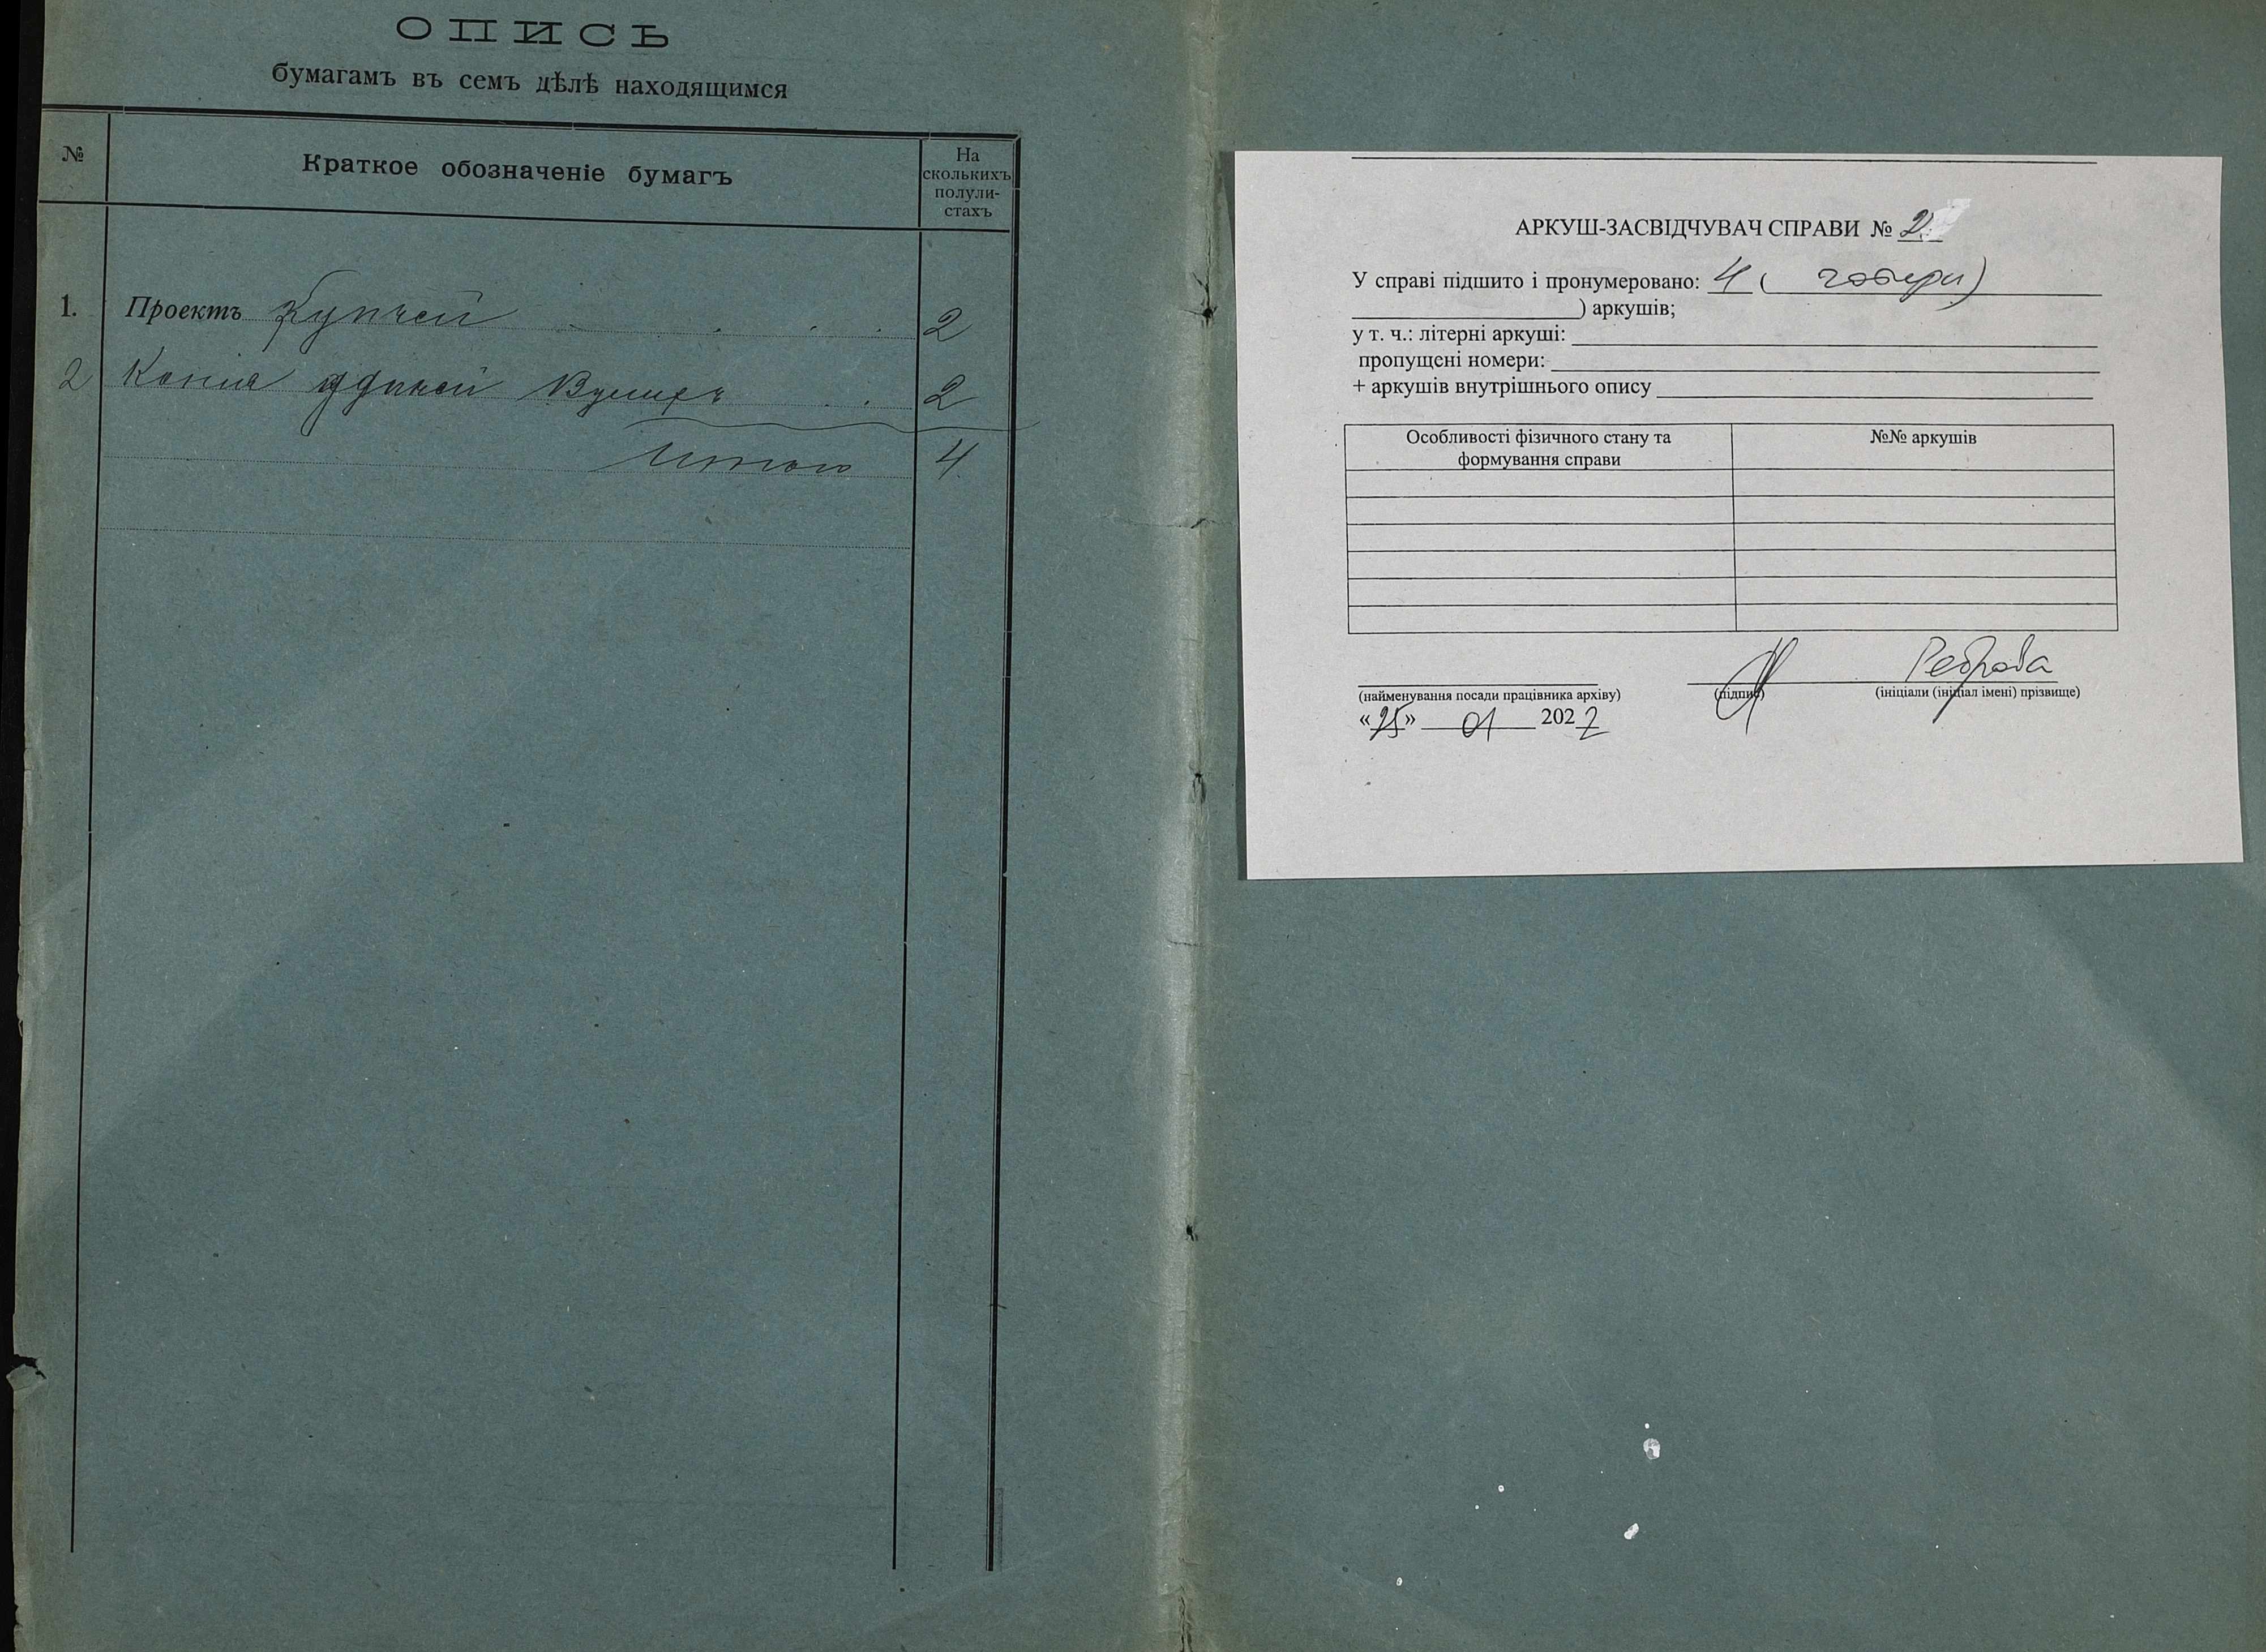 ОПИСЬ
бумагамъ въ семъ дѣлѣ находящимся
№
Краткое обозначеніе бумагъ
На
сколькихъ
полули-
стахъ
1. Проектъ Купчей 2
2 Копія 2
Итого 4
АРКУШ-ЗАСВІДЧУВАЧ СПРАВИ № 2
У справі підшито і пронумеровано: 4 ( чотири)
) аркушів;
у т. ч.: літерні аркуші:
пропущені номери:
+ аркушів внутрішнього опису
Особливості фізичного стану та
формування справи
№№ аркушів
Реброва
(найменування посади працівника архіву) (підпис) (ініціали (ініціал імені) прізвище)
«25» 01 2022